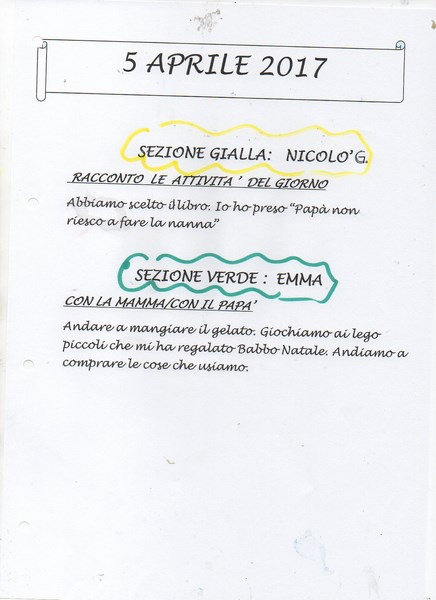 5 APRILE 2017
SEZIONE GIALLA: NICOLO' G.
RACCONTO LE ATTIVITA' DEL GIORNO
Abbiamo scelto il libro. Io ho preso "Papà non
riesco a fare la nanna"
SEZIONE VERDE : EMMA
CON LA MAMMA/CON IL PAPA'
Andare a mangiare il gelato. Giochiamo ai lego
piccoli che mi ha regalato Babbo Natale. Andiamo a
comprare le cose che usiamo.